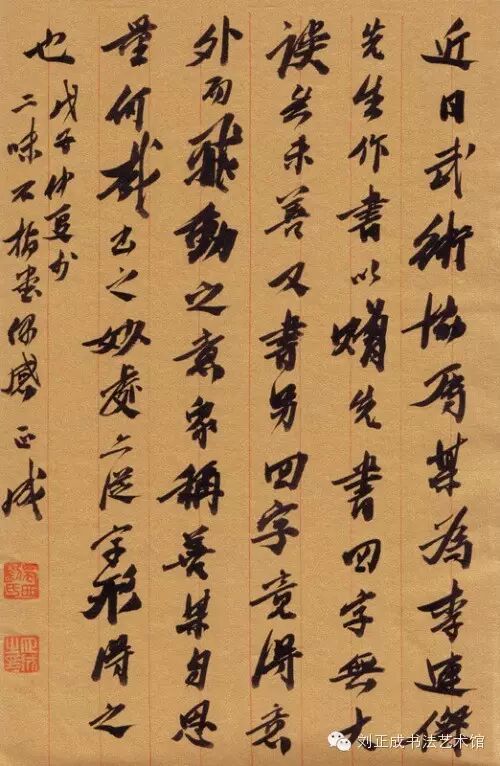 近日武術協某為李連傑
先生作書以贈先書四字無大
誤未善又書另四字竟得意
外而飛動之意象稱善某自思
量何哉書之妙處亦從字形得之
也
戊子仲夏於
二味不指堂偶感 正成
刘正成书法艺术馆